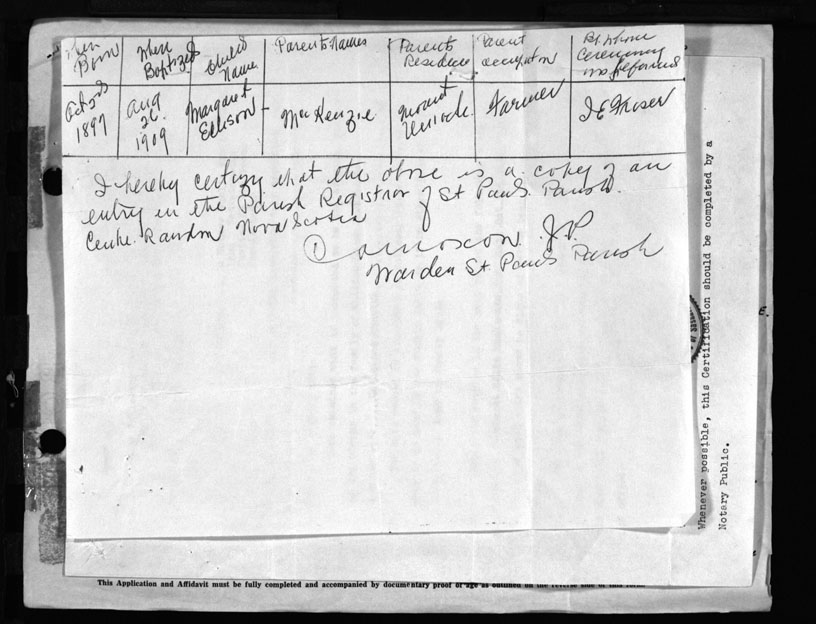 When Born | When Baptized | Child's Name | Parents Names | Parents Residence | Parent occupation | By whom Ceremony was performed
Oct 1897 | Aug 26 1909 | Margaret Ellison | MacKenzie | Mount Uniacke | Farmer | I E Fraser
I hereby certify that the above is a copy of an
entry in the Parish Registrar of St Pauls Parish.
Centre Rawdon Nova Scotia
J.P.
Warden St. Pauls Parish
Whenever possible, this Certification should be completed by a
Notary Public.
This Application and Affidavit must be fully completed and accompanied by documentary proof of age as outlined on the reverse side of this form
E.